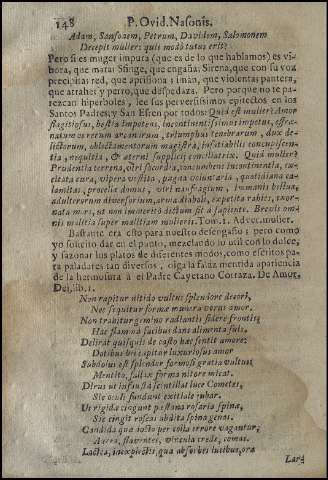 148 P. Ovid. Nasonis.
Adam, Sansonem, Petrum, Davidem, Salomonem
Decepit mulier: quis modò tutus erit?
Pero si es muger impura (que es de lo que hablamos) es vi-
bora, que mata: Sfinge, que engaña: Sirena, que con su voz
preci; red, que aprisiona: iman, que violenta: pantera,
que atrahe: y perro, que despedaza. Pero porque no te pa-
rezcan hiperboles, lee sus perversissimos epitectos en los
Santos Padres, y San Efren por todos: Quid est mulier? Amor
flagitiosus, bestia impotens, incontinentissimus impetus,
rerum arcanarum, triumphus tenebrarum, dux de-
lictorum, oblectamentorum magistra, insatiabilis concupiscen-
tia, nequitia, & aterni supplicij conciliatrix. Quid mulier?
Prudentia terrena, viri socordia, concumbens incontinentia,
cura, vipera vestita, pugna voluntaria, quotidiana ca-
lamitas, procella domus, viri naufragium, humanis bellua,
adulterorum diversorium, arma diaboli, expetita rabies, exor-
nata mors, ut non immeritò dictum sit à sapiente. Brevis om-
nis malitia super malitiam mulieris. Tom. 1. Adver. mulier.
Bastante era esto para nuestro desengaño: pero como
yo solicito dar en el punto, mezclando lo util con lo dulce,
y sazonar los platos de diferentes modos, como escritos pa-
ra paladares tan diversos, oiga la falsa mentida apariencia
de la hermosura à el Padre Cayetano Cottaza. De Amor.
Dei, lib. 1.
Non rapitur nitido vultus splendore decori,
Nec sequitur formæ munera verus amor.
Non trahitur gemino radiantis sidere frontis;
Hæc flammâ faucibus dans alimenta suis.
Delirat quisquis de casto hæc sentit amore:
Dotibus bis capitur luxuriosus amor
Subdolus est splendor formosi gratia vultus;
Mentito, fallax forma nitore micat.
Dirus ut infausta scintillat luce Cometes,
Sic oculi fundunt exitiale jubar.
Ut rigida cingunt pestana rosaria spina,
Sic cingit roseas abdita spina genas.
Candida quæ josto per colla errore vagantur;
Aurea, flaventes, vincula crede, comas.
Lactea, inexpletis, qua absorbet lucibus, ora
Lard